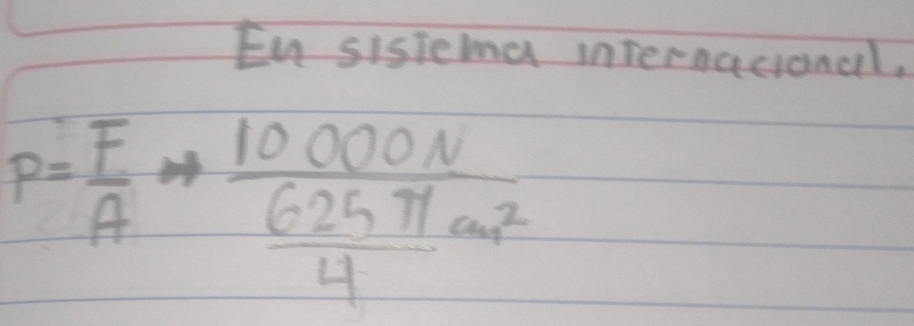 En sistema internacional.
P = F/A → 10 000 N / (625 π/4 cm²)